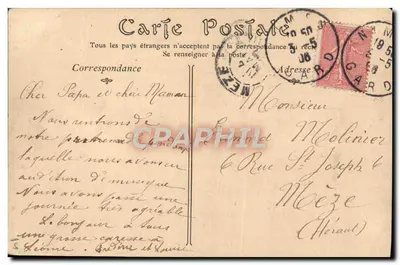 Carte Postale
Tous les pays étrangers n'acceptent pas la correspondance au recto
Se renseigner à la poste
Correspondance
Adresse
Cher Papa et chère Maman
Nous rentrons de
notre promenade
laquelle nous avons eu
audition de musique
Nous avons passé une
journée très agréable
Le bonjour à tous
une grosse caresse à
et Louise
Monsieur
Molinier
6 Rue St Joseph 6
Mèze
(Hérault)
MEZE
GARD
3 -5
06
GARD
CARTEPOSTALE